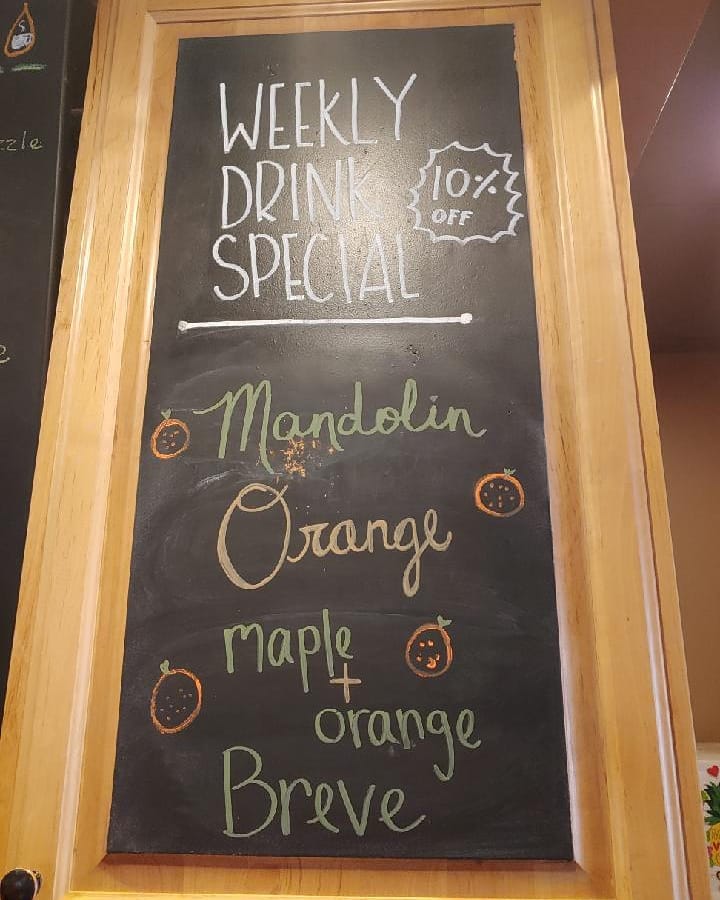 WEEKLY
DRINK
SPECIAL
10%
OFF
Mandolin
Orange
maple
+
orange
Breve